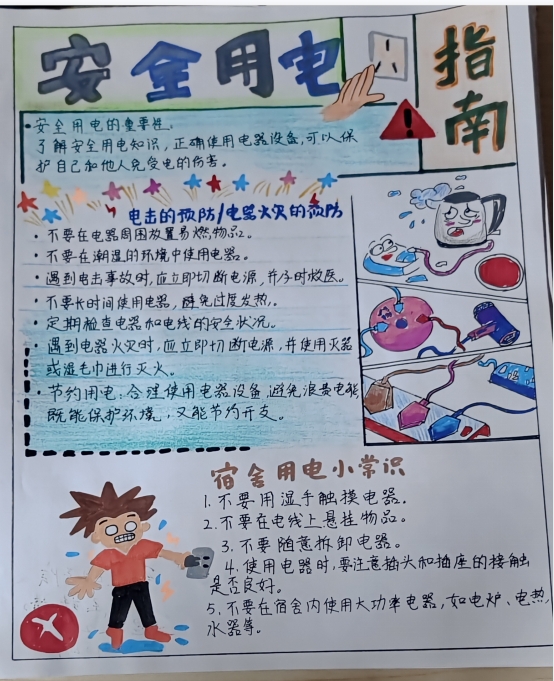 安全用电
指南
·安全用电的重要性.
了解安全用电知识，正确使用电器设备，可以保
护自己和他人免受电的伤害。
电击的预防/电器火灾的预防
·不要在电器周围放置易燃物品。
·不要在潮湿的环境中使用电器。
·遇到电击事故时，应立即切断电源，并及时救医。
·不要长时间使用电器，避免过度发热。
·定期检查电器和电线的安全状况。
·遇到电器火灾时，应立即切断电源，并使用灭器
或湿毛巾进行灭火。
·节约用电：合理使用电器设备，避免浪费电能，
既能保护环境，又能节约开支。
宿舍用电小常识
1.不要用湿手触摸电器。
2.不要在电线上悬挂物品。
3.不要随意拆卸电器。
4.使用电器时，要注意插头和插座的接触
是否良好。
5.不要在宿舍内使用大功率电器，如电炉、电热
水器等。